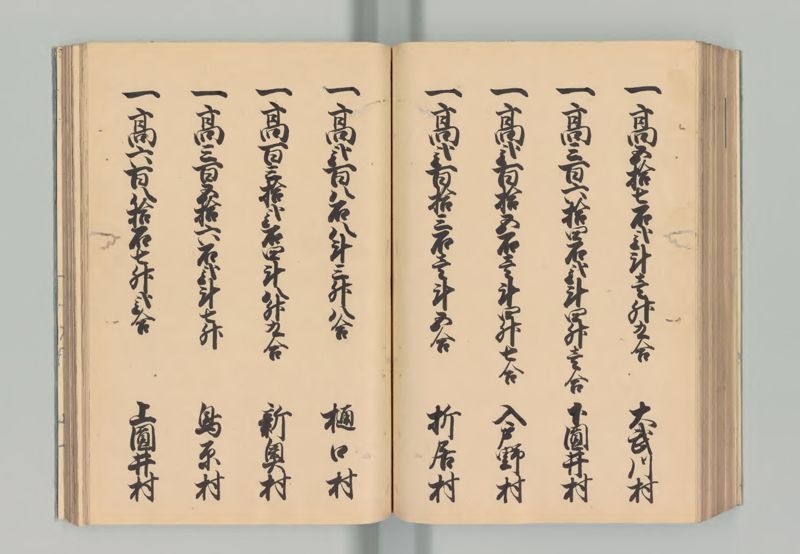 一高五拾七石弐斗壱升九合 大武川村
一高三百六拾四石弐斗四升壱合 下圓井村
一高弐百拾五石壱斗四升七合 入戸野村
一高弐百拾三石壱斗五合 折居村
一高弐百八石八斗三升八合 樋口村
一高百三拾弐石四斗八升九合 新奥村
一高三百五拾六石弐斗七升 鳥原村
一高六百八拾石七升弐合 上圓井村